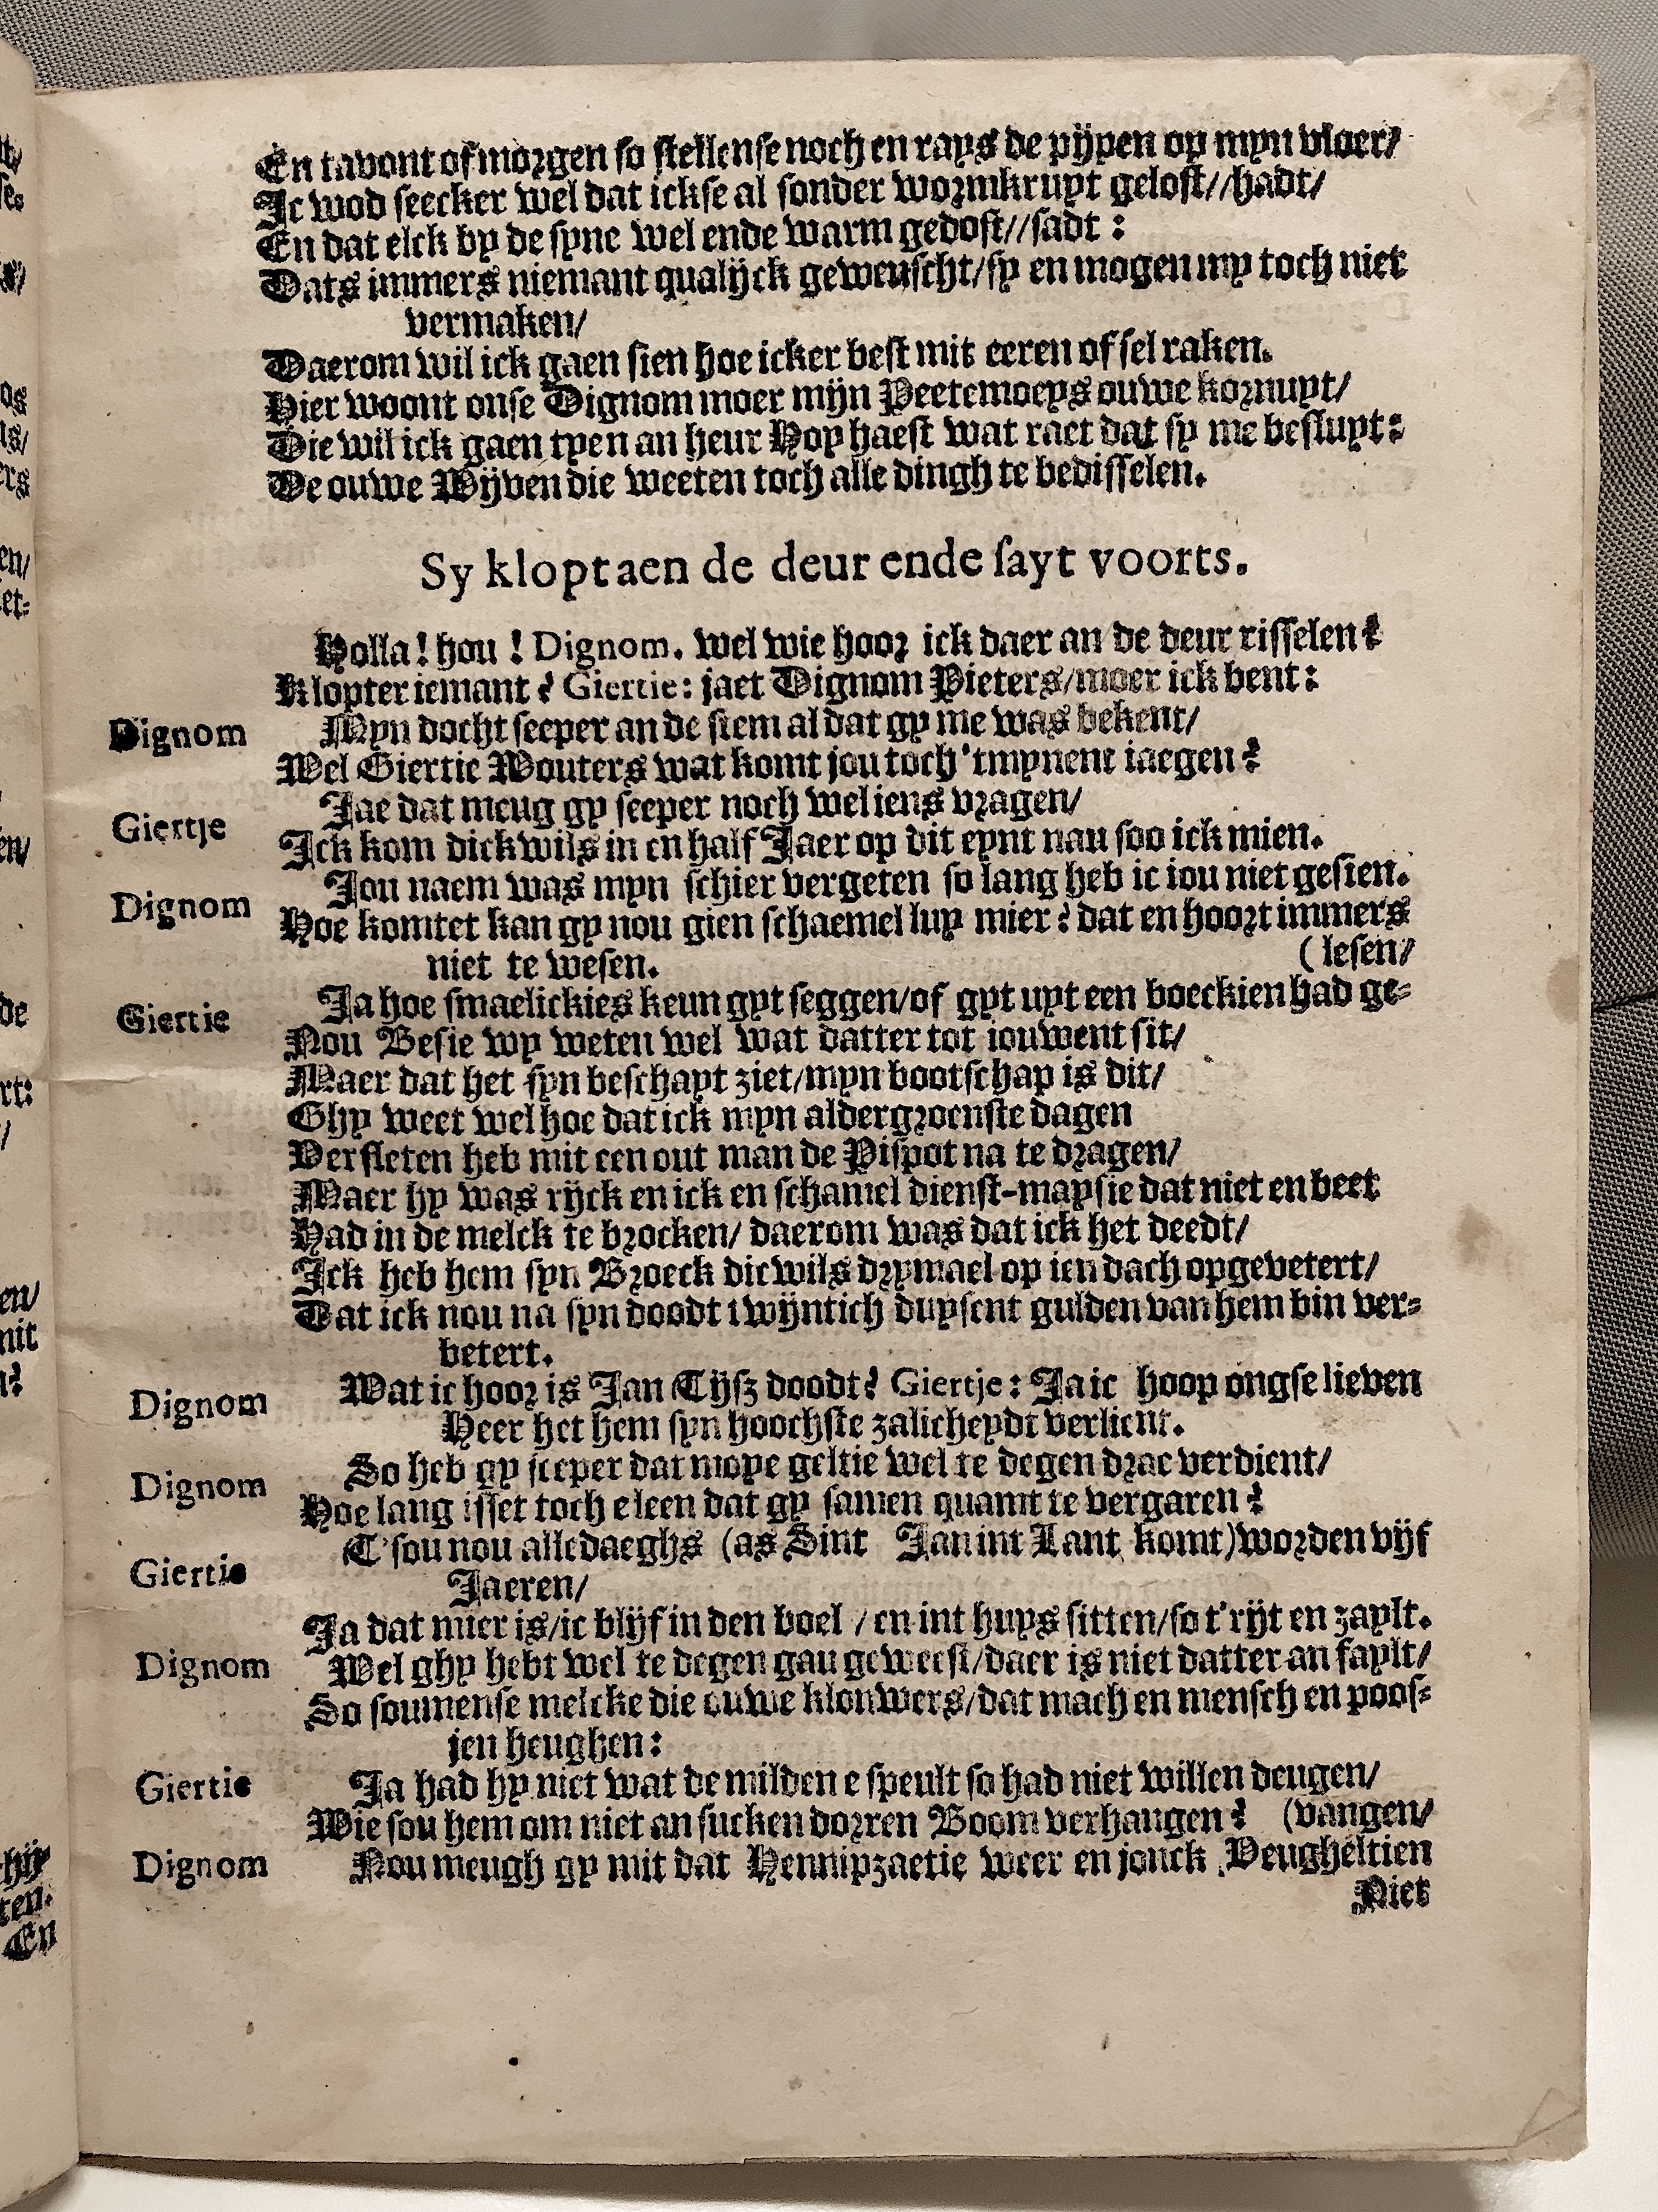 En tavont of morgen so stellense noch en rays de pijpen op myn vloer/
Ic wod seecker wel dat ickse al sonder wormkruyt gelost//hadt/
En dat elck by de syne wel ende warm gedost//sadt:
Dats immers niemant qualijck gewenscht/sy en mogen my toch niet
vermaken/
Daerom wil ick gaen sien hoe icker best mit eeren of sel raken.
Hier woont onse Dignom moer mijn Peetemoeys ouwe kornuyt/
Die wil ick gaen tyen an heur Hoy haest wat raet dat sy me besluyt:
De ouwe Wijven die weeten toch alle dingh te bedisselen.
Sy klopt aen de deur ende sayt voorts.
Holla! hou! Dignom. wel wie hoor ick daer an de deur risselen?
Klopter iemant? Giertie: jaet Dignom Pieters/moer ick bent:
Dignom Myn docht seeper an de stem al dat gy me was bekent/
Wel Giertie Wouters wat komt jou toch 'tmynent iaegen?
Giertje Jae dat meug gy seeper noch wel iens vragen/
Ick kom dickwils in en half Jaer op dit eynt nau soo ick mien.
Dignom Jou naem was myn schier vergeten so lang heb ic iou niet gesien.
Hoe komtet kan gy nou gien schaemel luy mier? dat en hoort immers
niet te wesen. (lesen/
Giertie Ja hoe smaelickies keun gyt seggen/of gyt uyt een boeckien had ge-
Nou Besie wy weten wel wat datter tot iouwent sit/
Maer dat het syn beschayt ziet/myn bootschap is dit/
Ghy weet wel hoe dat ick myn aldergroenste dagen
Versleten heb mit een out man de Pispot na te dragen/
Maer hy was rijck en ick en schamel dienst-maysie dat niet en beet
Had in de melck te brocken/ daerom was dat ick het deedt/
Ick heb hem syn Broeck dicwils drymael op ien dach opgevetert/
Dat ick nou na syn doodt twijntich duysent gulden van hem bin ver-
betert.
Dignom Wat ic hoor is Jan Tijsz doodt? Giertje: Ja ic hoop ongse lieven
Heer het hem syn hoochste zalicheydt verlient.
Dignom So heb gy seeper dat moye geltie wel te degen drae verdient/
Hoe lang isset toch eleen dat gy samen quamt te vergaren?
Giertie T'sou nou alledaeghs (as Sint Jan int Lant komt) worden vijf
Jaeren/
Ja dat mier is/ic blijf in den boel / en int huys sitten/so t'rijt en zaylt.
Dignom Wel ghy hebt wel te degen gau geweest/daer is niet datter an faylt/
So soumense melcke die ouwe klouwers/dat mach en mensch en poos-
jen heughen:
Giertie Ja had hy niet wat de milden e speult so had niet willen deugen/
Wie sou hem om niet an sucken dorren Boom verhangen? (vangen/
Dignom Nou meugh gy mit dat Hennipzaetie weer en jonck Veugheltien
Niet